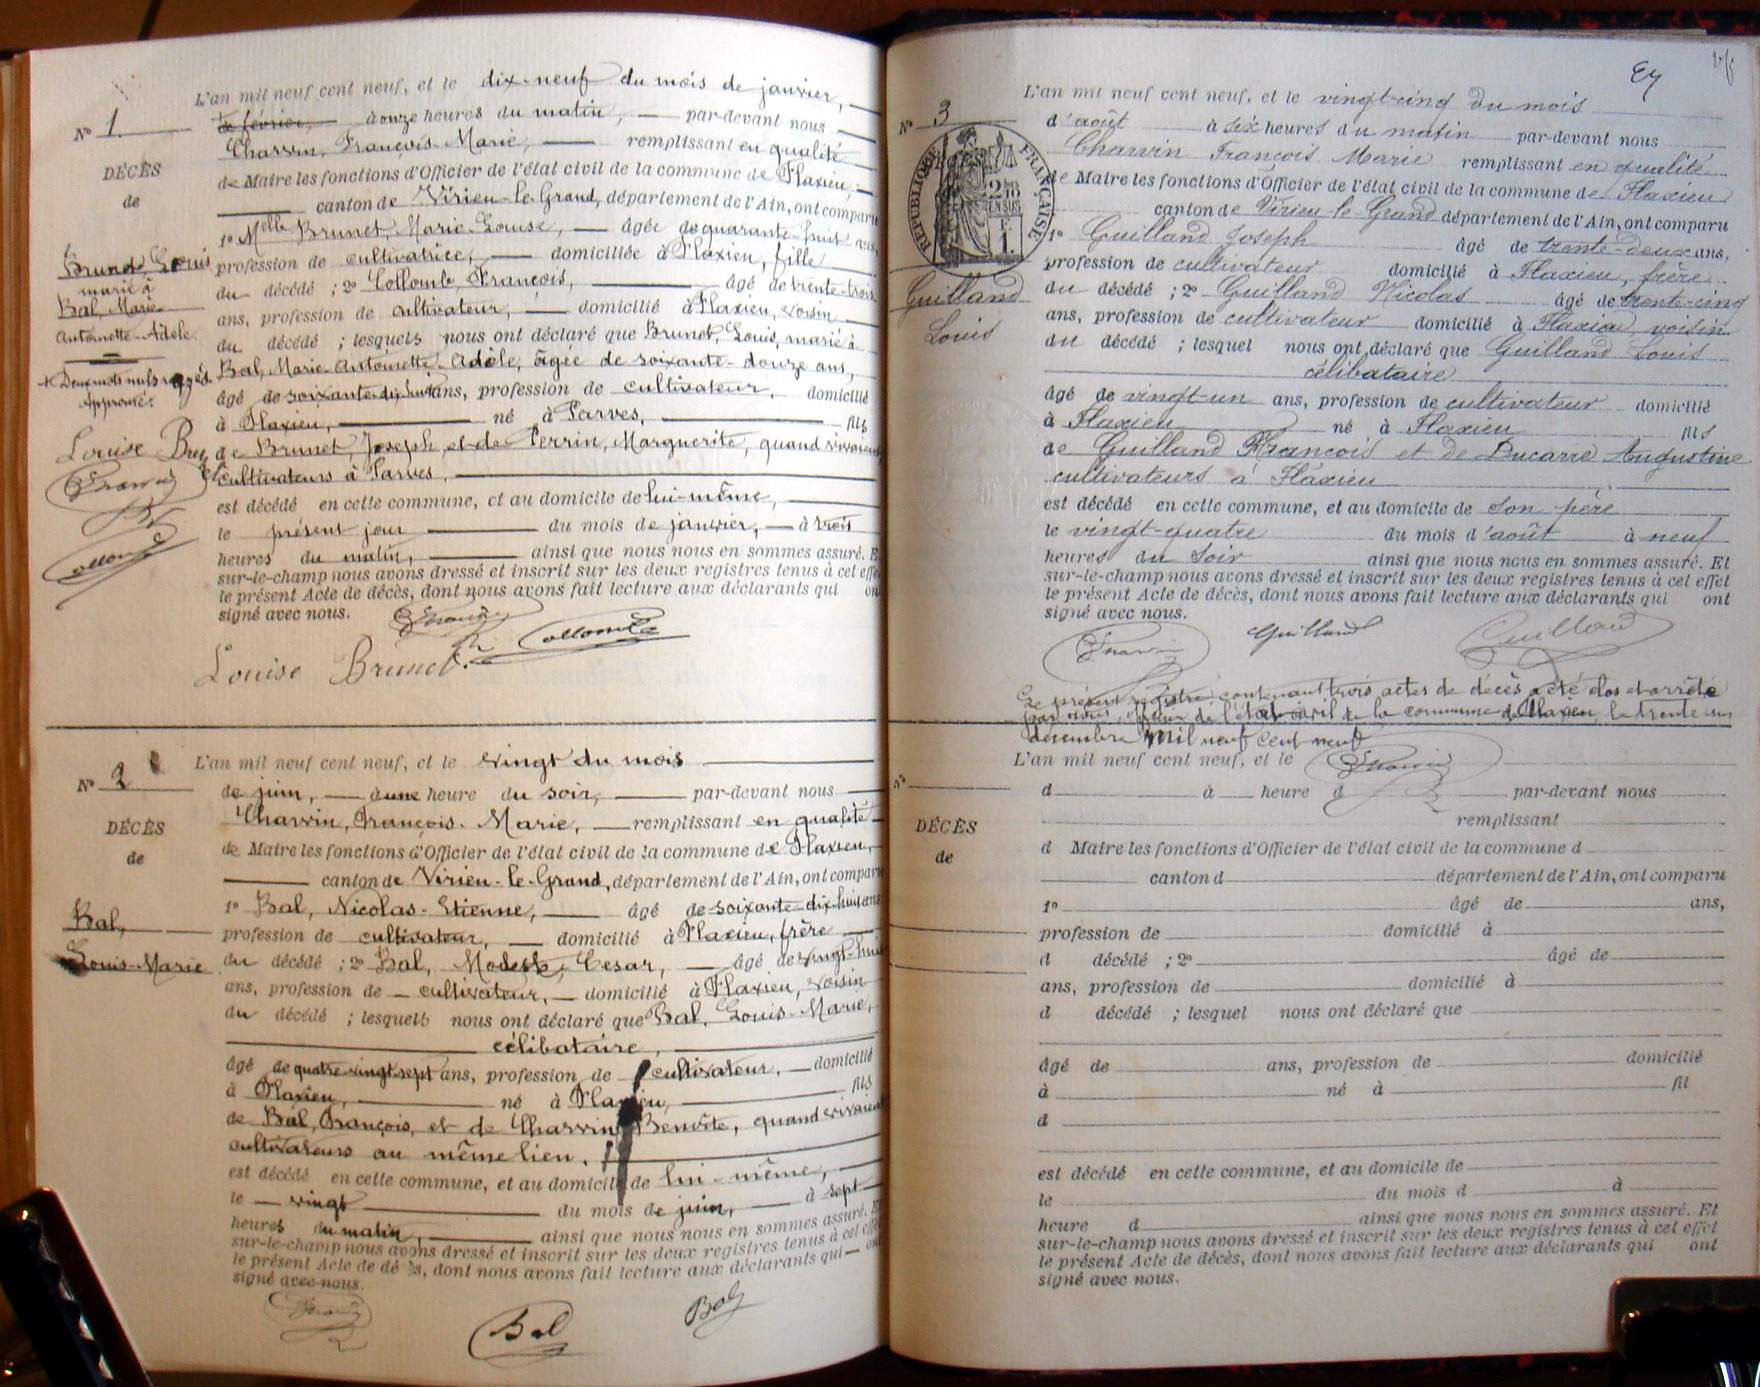 N° 1
DÉCÈS
de
Brunet Louis
marié à
Bal, Marie
Antoinette-Adèle
+ Deux mots nuls rayés
Approuvé.
Louise Brunet
L'an mil neuf cent neuf, et le dix-neuf du mois de janvier,
de février, à onze heures du matin, par-devant nous
Charvin, François-Marie, remplissant en qualité
de Maire les fonctions d'Officier de l'état civil de la commune de Flaxieu,
canton de Virieu-le-Grand, département de l'Ain, ont comparu
1° Melle Brunet, Marie-Louise, âgée de quarante-huit ans,
profession de cultivatrice, domiciliée à Flaxieu, fille
du décédé ; 2° Collomb, François, âgé de trente-trois
ans, profession de cultivateur, domicilié à Flaxieu, voisin
du décédé ; lesquels nous ont déclaré que Brunet, Louis, marié à
Bal, Marie-Antoinette-Adèle, âgée de soixante-douze ans,
âgé de soixante-dix-huit ans, profession de cultivateur, domicilié
à Flaxieu, né à Parves, fils
de Brunet, Joseph, et de Perrin, Marguerite, quand vivaient
cultivateurs à Parves,
est décédé en cette commune, et au domicile de lui-même,
le présent jour du mois de janvier, à trois
heures du matin, ainsi que nous nous en sommes assuré. Et
sur-le-champ nous avons dressé et inscrit sur les deux registres tenus à cet effet
le présent Acte de décès, dont nous avons fait lecture aux déclarants qui ont
signé avec nous.
Charvin
Collomb
Louise Brunet.
N° 2
DÉCÈS
de
Bal,
Louis-Marie
L'an mil neuf cent neuf, et le vingt du mois
de juin, à une heure du soir, par-devant nous
Charvin, François-Marie, remplissant en qualité
de Maire les fonctions d'Officier de l'état civil de la commune de Flaxieu,
canton de Virieu-le-Grand, département de l'Ain, ont comparu
1° Bal, Nicolas-Etienne, âgé de soixante-dix-huit ans
profession de cultivateur, domicilié à Flaxieu, frère
du décédé ; 2° Bal, Modeste, Cesar, âgé de vingt-huit
ans, profession de cultivateur, domicilié à Flaxieu, voisin
du décédé ; lesquels nous ont déclaré que Bal, Louis-Marie,
célibataire,
âgé de quatre-vingt-sept ans, profession de cultivateur, domicilié
à Flaxieu, né à Flaxieu, fils
de Bal, François, et de Charvin Benoîte, quand vivaient
cultivateurs au même lieu,
est décédé en cette commune, et au domicile de lui-même,
le vingt du mois de juin, à sept
heures du matin, ainsi que nous nous en sommes assuré. Et
sur-le-champ nous avons dressé et inscrit sur les deux registres tenus à cet effet
le présent Acte de décès, dont nous avons fait lecture aux déclarants qui ont
signé avec nous.
Charvin
Bal
Bal
N° 3
RÉPUBLIQUE FRANÇAISE
Guilland
Louis
L'an mil neuf cent neuf, et le vingt-cinq du mois
d'août à six heures du matin par-devant nous
Charvin François Marie remplissant en qualité
de Maire les fonctions d'Officier de l'état civil de la commune de Flaxieu
canton de Virieu-le-Grand département de l'Ain, ont comparu
1° Guilland Joseph âgé de trente-deux ans,
profession de cultivateur domicilié à Flaxieu, frère
du décédé ; 2° Guilland Nicolas âgé de trente-cinq
ans, profession de cultivateur domicilié à Flaxieu voisin
du décédé ; lesquel nous ont déclaré que Guilland Louis
célibataire
âgé de vingt-un ans, profession de cultivateur domicilié
à Flaxieu né à Flaxieu fils
de Guilland François et de Ducarre Augustine
cultivateurs à Flaxieu
est décédé en cette commune, et au domicile de son père
le vingt-quatre du mois d'août à neuf
heures du soir ainsi que nous nous en sommes assuré. Et
sur-le-champ nous avons dressé et inscrit sur les deux registres tenus à cet effet
le présent Acte de décès, dont nous avons fait lecture aux déclarants qui ont
signé avec nous.
Charvin
Guilland
Guilland
Le présent registre contenant trois actes de décès a été clos et arrêté
par nous, officier de l'état civil de la commune de Flaxieu, le trente-un
décembre mil neuf cent neuf
N°
DÉCÈS
de
L'an mil neuf cent neuf, et le
d à heure d par-devant nous
remplissant
d Maire les fonctions d'Officier de l'état civil de la commune d
canton d département de l'Ain, ont comparu
1° âgé de ans,
profession de domicilié à
d décédé ; 2° âgé de
ans, profession de domicilié à
d décédé ; lesquel nous ont déclaré que
âgé de ans, profession de domicilié
à né à fil
d
est décédé en cette commune, et au domicile de
le du mois d à
heure d ainsi que nous nous en sommes assuré. Et
sur-le-champ nous avons dressé et inscrit sur les deux registres tenus à cet effet
le présent Acte de décès, dont nous avons fait lecture aux déclarants qui ont
signé avec nous.